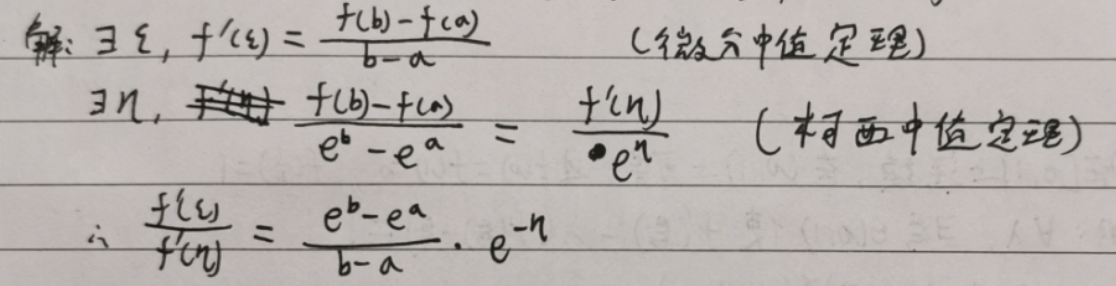 解: ∃ ξ, f'(ξ) = (f(b)-f(a))/(b-a) (微分中值定理)
∃η, (f(b)-f(a))/(e^b-e^a) = f'(η)/e^η (柯西中值定理)
∴ f'(ξ)/f'(η) = (e^b-e^a)/(b-a) · e^-η